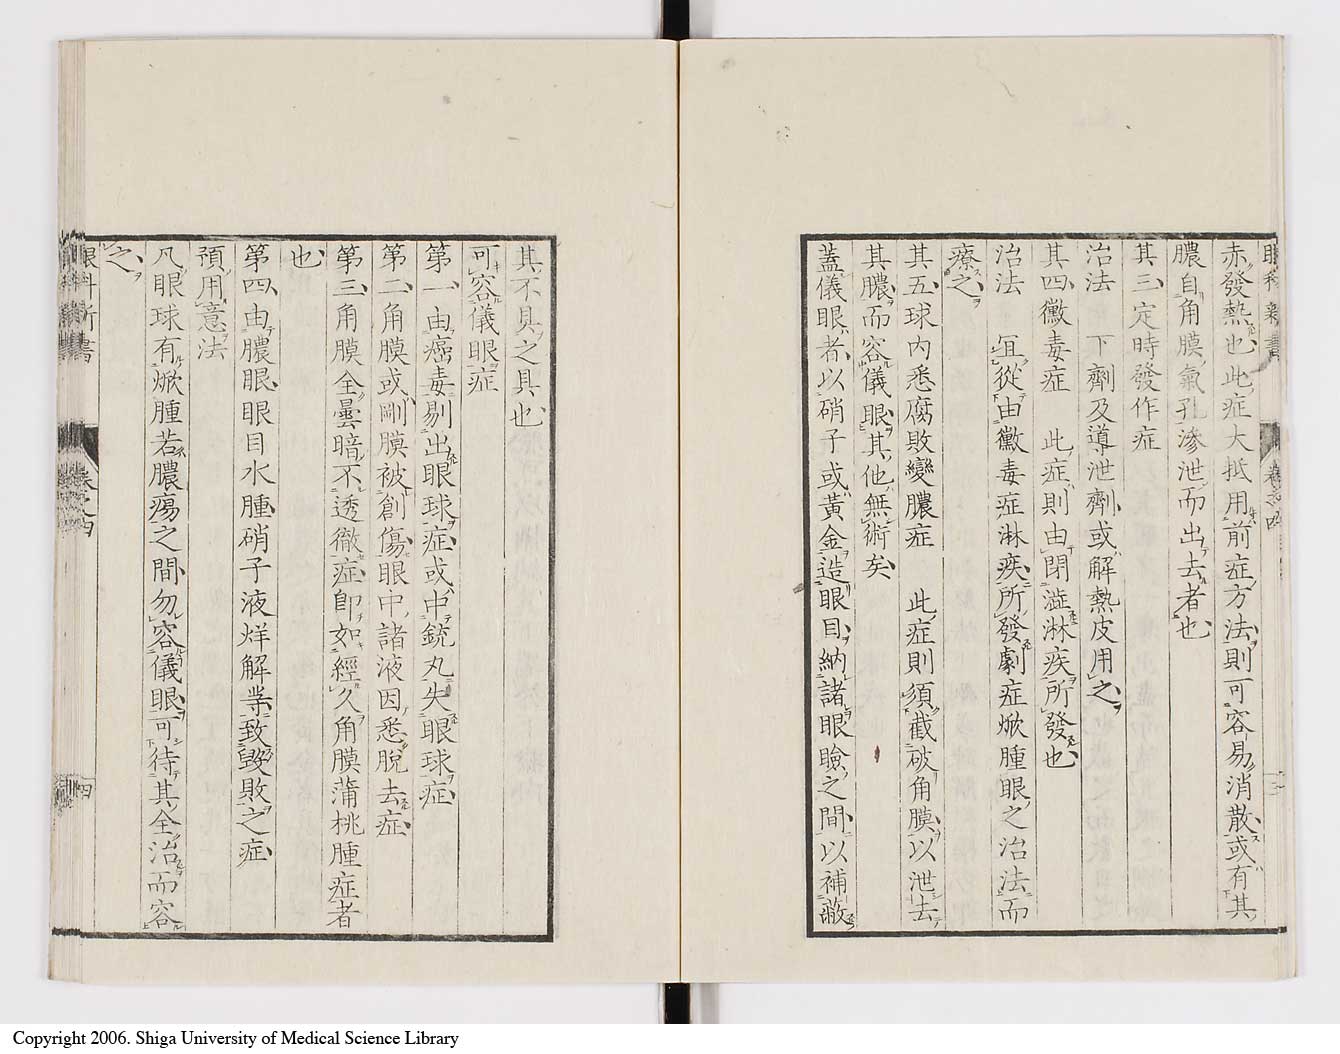 赤發熱也此症大抵用前症方法則可容易消散或有其
膿自角膜氣孔滲泄而出去者也
其三定時發作症
治法 下劑及導泄劑或解熱皮用之
其四黴毒症 此症則由閉澁淋疾所發也
治法 冝從由黴毒症淋疾所發劇症焮腫眼之治法而
療之
其五球內悉腐敗變膿症 此症則須截破角膜以泄去
其膿而容儀眼其他無術矣
蓋儀眼者以硝子或黃金造眼目納諸眼瞼之間以補蔽
其不具之具也
可容儀眼症
第一由癌毒剔出眼球症或中銃丸失眼球症
第二角膜或剛膜被創傷眼中諸液因悉脫去症
第三角膜全曇暗不透徹症卽如經久角膜蒲桃腫症者
也
第四由膿眼眼目水腫硝子液烊解等致毀敗之症
預用意法
凡眼球有焮腫若膿瘍之間勿容儀眼可待其全治而容
之
眼科新書 卷之四 四
Copyright 2006. Shiga University of Medical Science Library